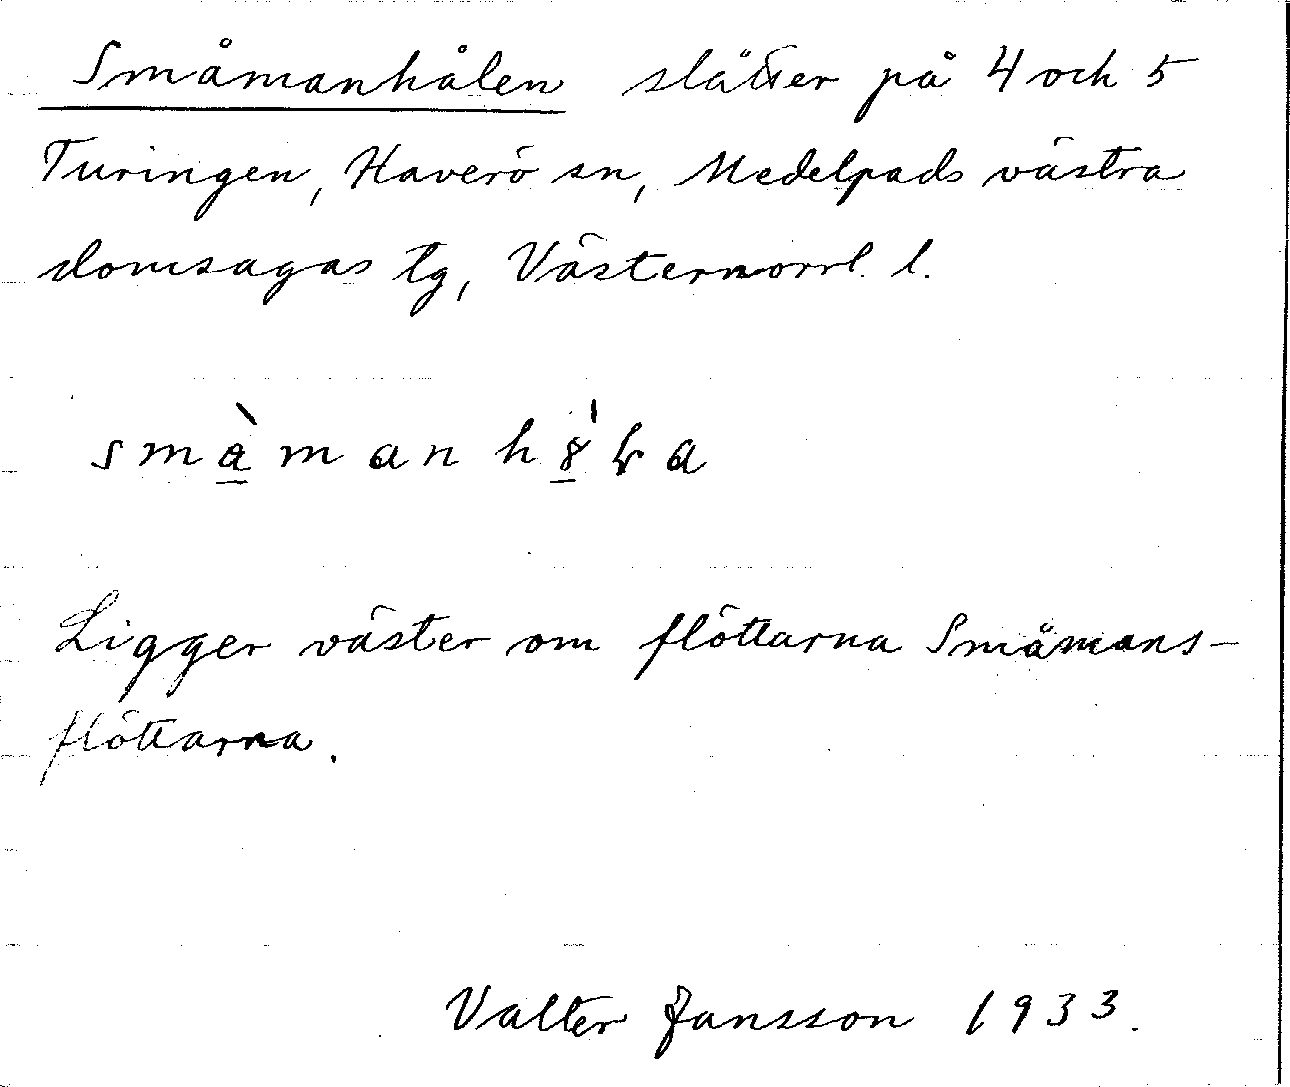 Småmanhålen slåtter på 4 och 5
Turingen, Haverö sn, Medelpads västra
domsagas tg, Västernorrl. l.
Ligger väster om flöttarna Småmans-
flöttarna.
Valter Jansson 1933.